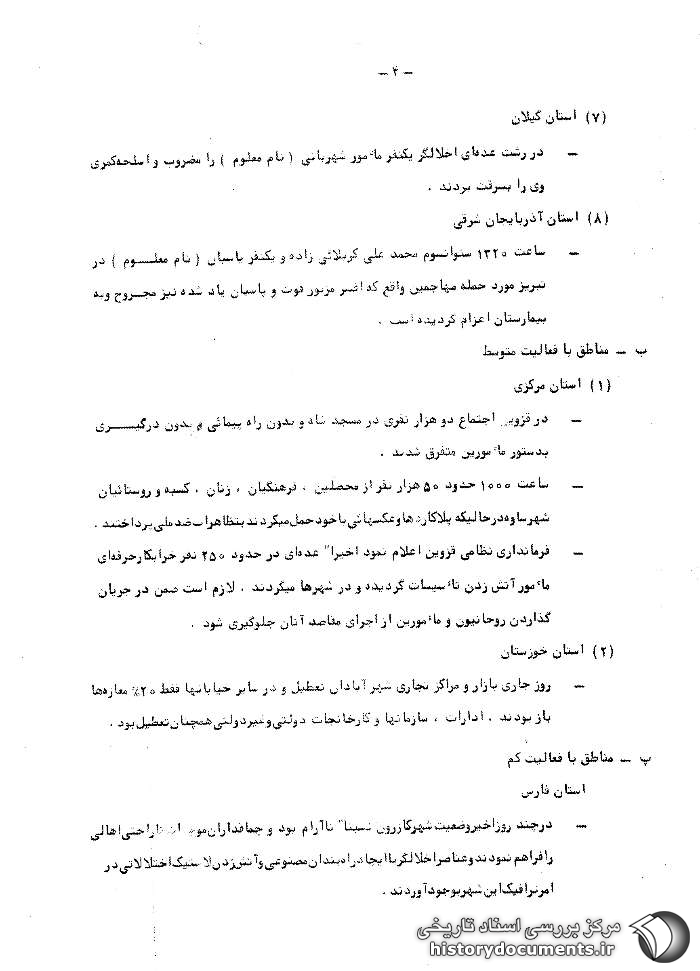 - ۴ -
(۷) استان گیلان
- در رشت عده‌ای اخلالگر یکنفر مأمور شهربانی ( نام معلوم ) را مضروب و اسلحه کمری
وی را بسرقت بردند .
(۸) استان آذربایجان شرقی
- ساعت ۱۳۲۰ ستوانسوم محمد علی کربلائی زاده و یکنفر پاسبان ( نام معلوم ) در
تبریز مورد حمله مهاجمین واقع که افسر مزبور فوت و پاسبان یاد شده نیز مجروح وبه
بیمارستان اعزام گردیده است .
ب - مناطق با فعالیت متوسط
(۱) استان مرکزی
- در قزوین اجتماع دو هزار نفری در مسجد شاه و بدون راه پیمائی و بدون درگیری
بدستور مأمورین متفرق شدند .
- ساعت ۱۰۰۰ حدود ۵۰ هزار نفر از محصلین ، فرهنگیان ، زنان ، کسبه و روستائیان
شهر ساوه درحالیکه پلاکاردها وعکسهائی با خود حمل میکردند بتظاهرات ضد ملی پرداختند .
- فرمانداری نظامی قزوین اعلام نمود اخیرا" عده‌ای در حدود ۲۵۰ نفر خرابکار حرفه‌ای
مأمور آتش زدن تأسیسات گردیده و در شهرها میگردند . لازم است ضمن در جریان
گذاردن روحانیون و مأمورین از اجرای مقاصد آنان جلوگیری شود .
(۲) استان خوزستان
- روز جاری بازار و مراکز تجاری شهر آبادان تعطیل و در سایر خیابانها فقط ۲۰٪ مغازه‌ها
باز بودند . ادارات ، سازمانها و کارخانجات دولتی وغیردولتی همچنان تعطیل بود .
پ - مناطق با فعالیت کم
استان فارس
- درچند روز اخیر وضعیت شهر کازرون نسبتا" ناآرام بود و چماقداران ناراحتی اهالی
را فراهم نمودند و عناصر اخلالگر با ایجاد راه بندان مصنوعی و آتش زدن لاستیک اختلالاتی در
امر ترافیک این شهر بوجود آوردند .
مرکز بررسی اسناد تاریخی
historydocuments.ir